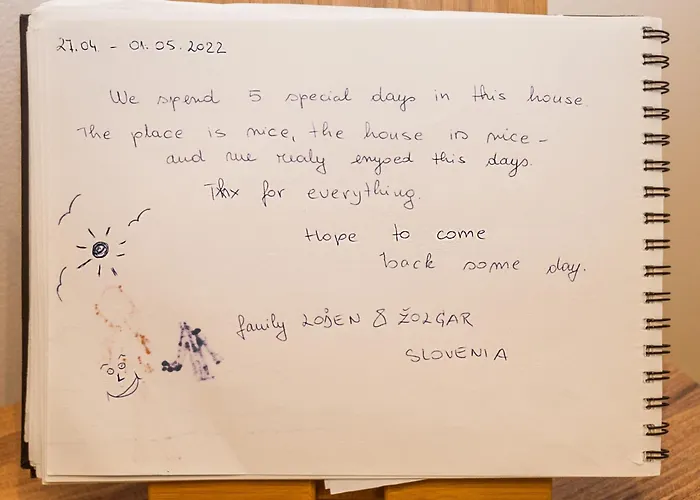 27.04 - 01.05.2022
We spend 5 special days in this house.
The place is nice, the house is nice -
and we realy enyoed this days.
Thx for everything.
Hope to come
back some day.
family LOŠEN & ŽOLGAR
SLOVENIA